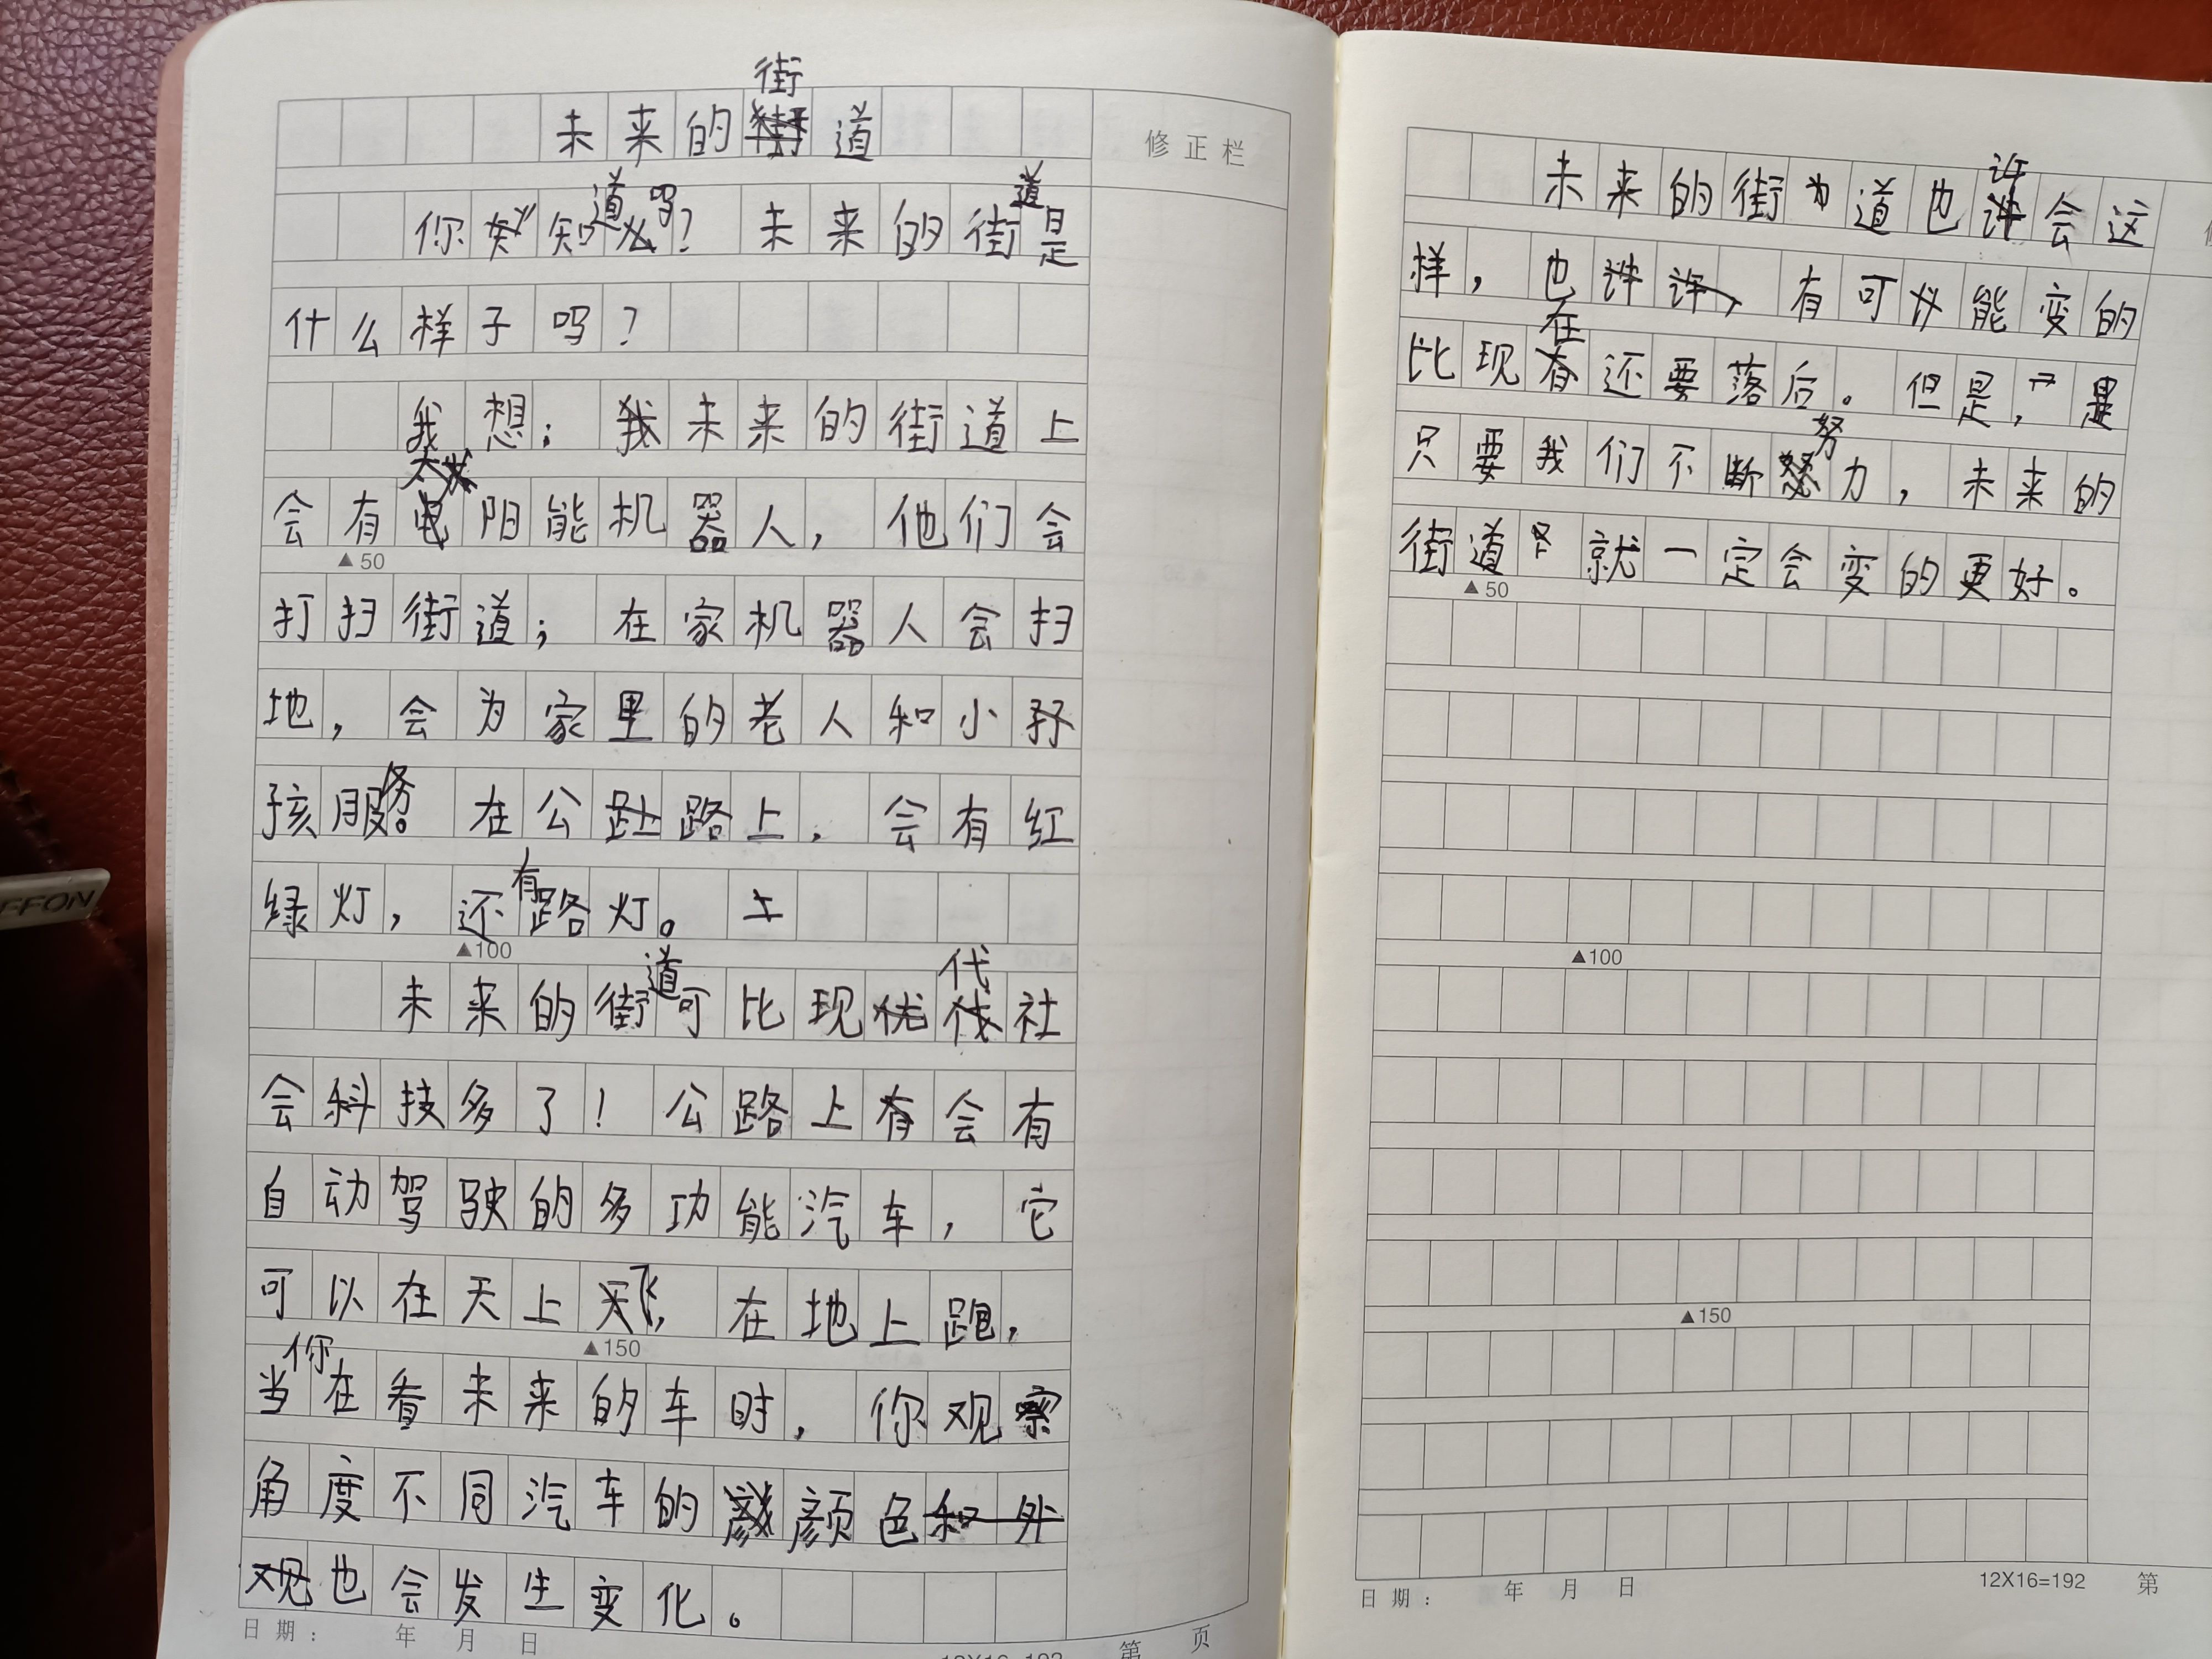 未来的街道
修正栏
你知道吗？未来的街道是
什么样子吗？
我想：未来的街道上
会有太阳能机器人，他们会
▲50
打扫街道；在家机器人会扫
地，会为家里的老人和小
孩服务。在公路上，会有红
绿灯，还有路灯。
▲100
未来的街道可比现代社
会科技多了！公路上会有
自动驾驶的多功能汽车，它
可以在天上飞，在地上跑，
▲150
当你在看未来的车时，你观察
角度不同汽车的颜色
也会发生变化。
日期： 年 月 日
12X16=192 第 页
未来的街道也许会这
样，也许，有可能变的
比现在还要落后。但是，
只要我们不断努力，未来的
街道就一定会变的更好。
▲50
▲100
▲150
日期： 年 月 日
12X16=192 第
FFON